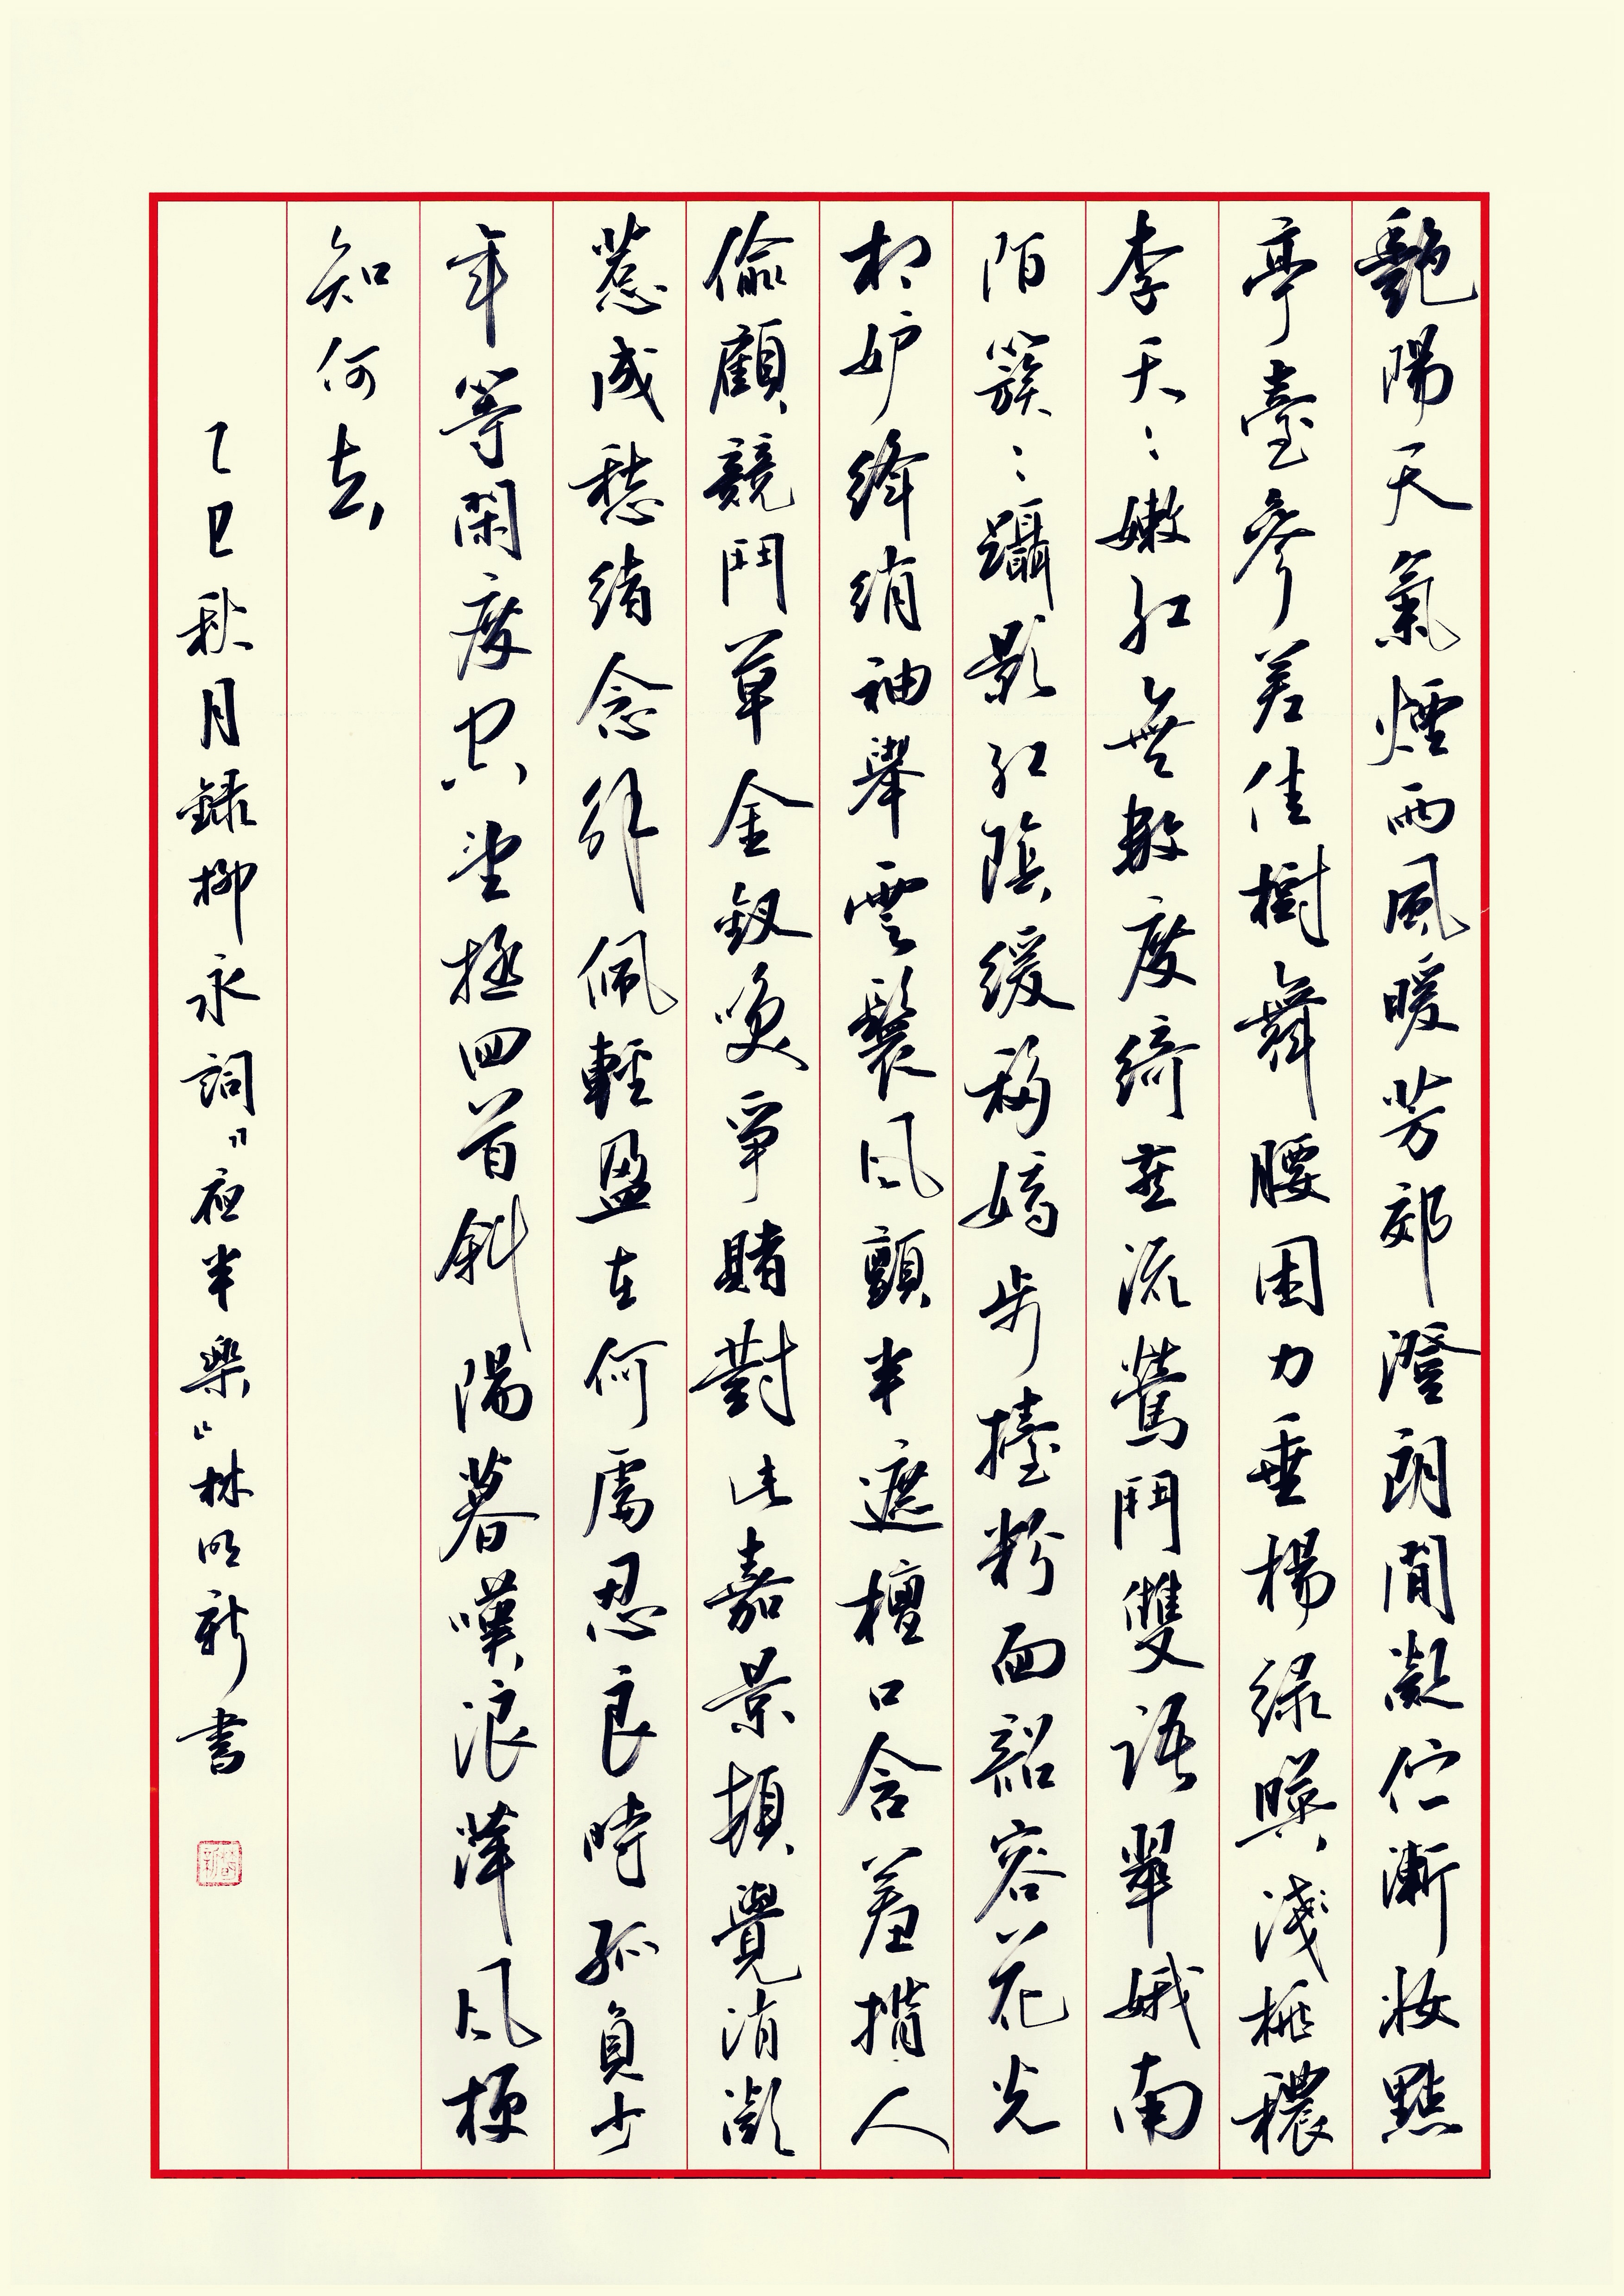 艷陽天氣煙雨風暖芳郊澄朗閒凝佇漸妝點
亭臺參差佳樹舞腰困力垂楊綠暎淺桃穠
李夭〻嫩紅無數度綺燕流鶯鬥雙語翠娥南
陌簇〻躡影紅陰緩移嬌步擡粉面韶容花光
相妒絳綃袖舉雲鬟風顫半遮檀口含羞揹人
偷顧競鬥草金釵笑爭賭對此嘉景頓覺消凝
惹成愁緒念解佩輕盈在何處忍良時孤負少
年等閑度空望極回首斜陽暮嘆浪萍風梗
知何去
乙巳秋月錄柳永詞"夜半樂"林明新書